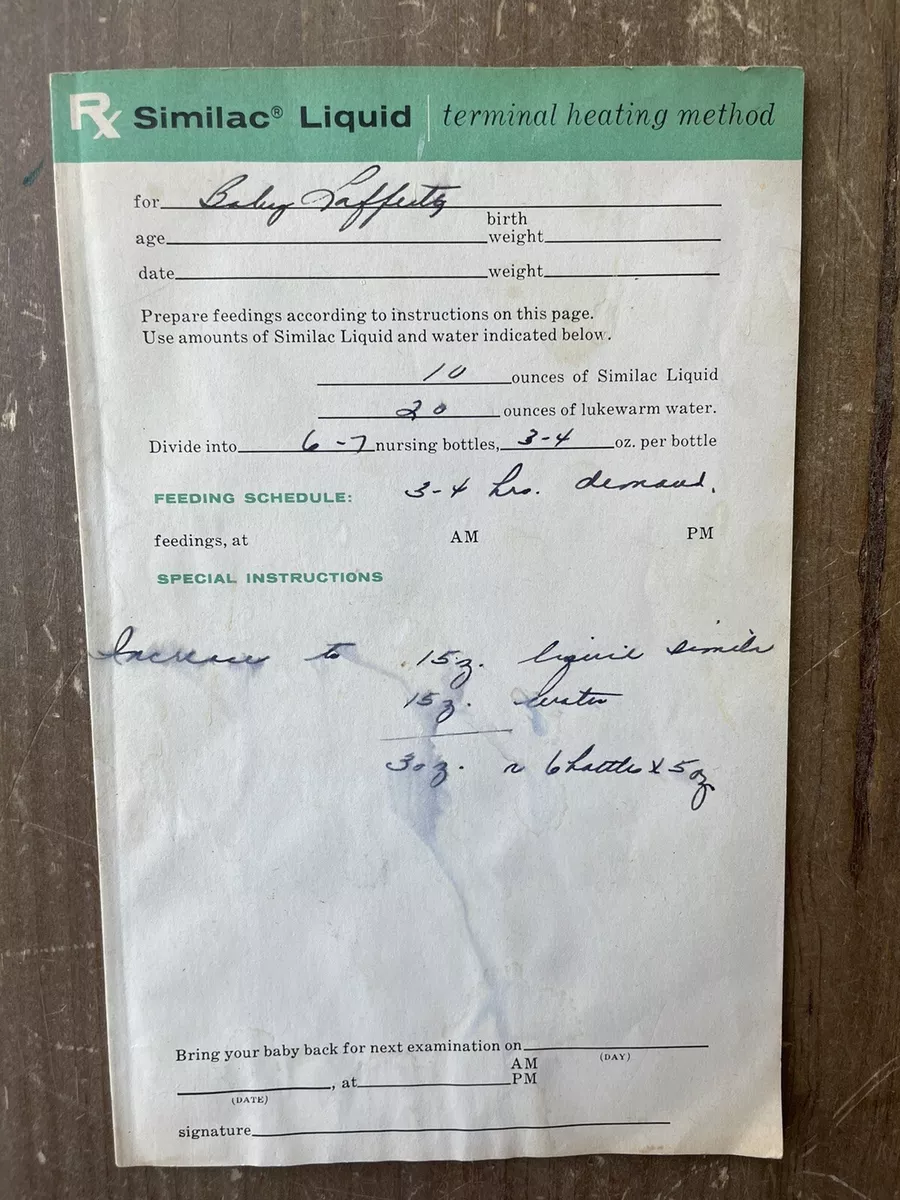 Rx Similac® Liquid | terminal heating method
for Baby Lafferty
birth
age weight
date weight
Prepare feedings according to instructions on this page.
Use amounts of Similac Liquid and water indicated below.
10 ounces of Similac Liquid
20 ounces of lukewarm water.
Divide into 6-7 nursing bottles, 3-4 oz. per bottle
FEEDING SCHEDULE: 3-4 hrs. demand.
feedings, at AM PM
SPECIAL INSTRUCTIONS
Increase to 15 z. liquid
15 z. water
30 z. 6 bottles x 5 oz
Bring your baby back for next examination on
(DAY)
AM
, at PM
(DATE)
signature